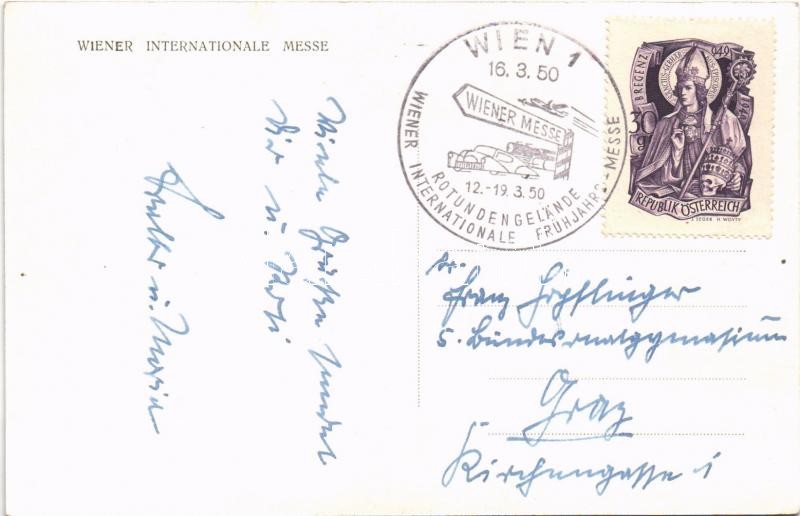 WIENER INTERNATIONALE MESSE
WIEN 1
16. 3. 50
WIENER MESSE
12.-19. 3. 50
ROTUNDENGELÄNDE
WIENER INTERNATIONALE FRÜHJAHRS-MESSE
BREGENZ
949
1949
30
g
REPUBLIK ÖSTERREICH
Viele Grüße sendet
Dir u.
Walter u. Maria
Franz Höpflinger
5. Bundesrealgymnasium
Graz
Kirchengasse 1